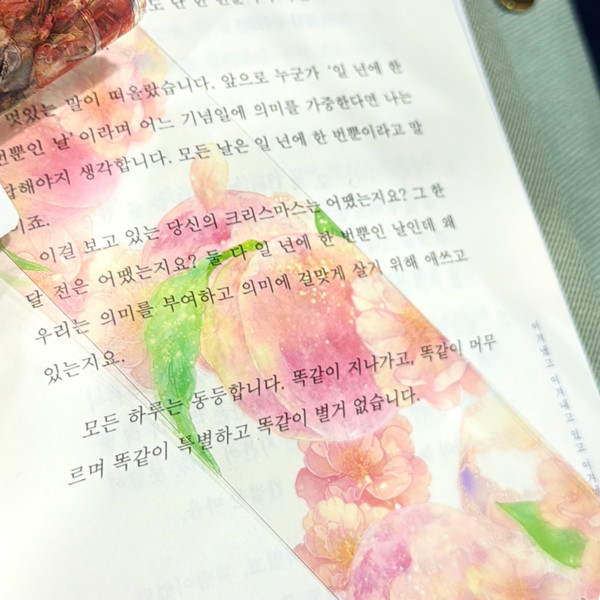 멋있는 말이 떠올랐습니다. 앞으로 누군가 ‘일 년에 한
번뿐인 날’이라며 어느 기념일에 의미를 가중한다면 나는
답해야지 생각합니다. 모든 날은 일 년에 한 번뿐이라고 말
이죠.
이걸 보고 있는 당신의 크리스마스는 어땠는지요? 그 한
달 전은 어땠는지요? 둘 다 일 년에 한 번뿐인 날인데 왜
우리는 의미를 부여하고 의미에 걸맞게 살기 위해 애쓰고
있는지요.
모든 하루는 동등합니다. 똑같이 지나가고, 똑같이 머무
르며 똑같이 특별하고 똑같이 별거 없습니다.
이겨내고 이겨내고 있고